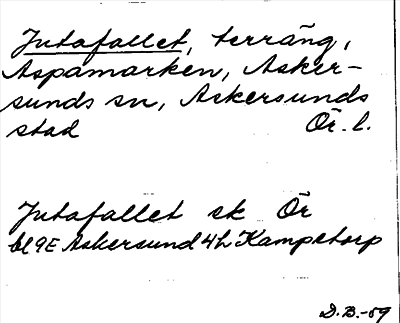 Jutafallet, terräng,
Aspamarken, Asker-
sunds sn, Askersunds
stad Ör. l.
Jutafallet sk Ör
bl 9E Askersund 4h Kampetorp
D.B.-59